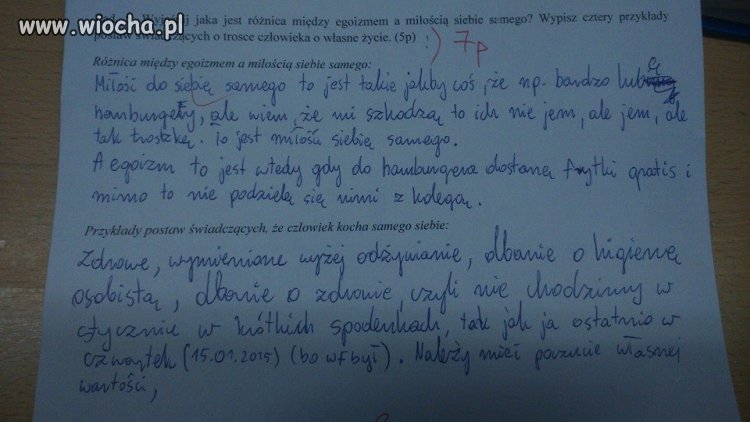 www.wiocha.pl
jaka jest różnica między egoizmem a miłością siebie samego? Wypisz cztery przykłady
postaw świadczących o trosce człowieka o własne życie. (5p) !) 7p
Różnica między egoizmem a miłością siebie samego:
Miłość do siebie samego to jest takie jakby coś, że np. bardzo lubię
hamburgery, ale wiem, że mi szkodzą to ich nie jem, ale jem, ale
tak troszkę. To jest miłość siebie samego.
A egoizm to jest wtedy gdy do hamburgera dostanę frytki gratis i
mimo to nie podzielę się nimi z kolegą.
Przykłady postaw świadczących, że człowiek kocha samego siebie:
Zdrowe, wymienione wyżej odżywianie, dbanie o higienę
osobistą, dbanie o zdrowie, czyli nie chodzimy w
styczniu w krótkich spodenkach, tak jak ja ostatnio w
czwartek (15.01.2015) (bo wf był). Należy mieć poczucie własnej
wartości,